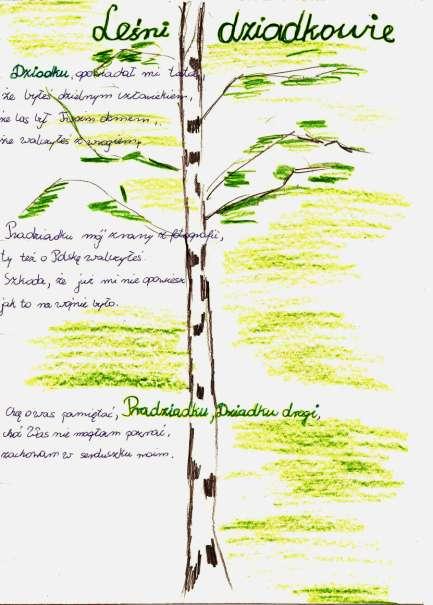 Leśni dziadkowie
Dziadku, opowiadał mi tata,
że byłeś dzielnym człowiekiem,
że las był Twym domem,
że walczyłeś z wrogiem,
Pradziadku mój znany z fotografii,
ty też o Polskę walczyłeś.
Szkoda, że już mi nie opowiesz
jak to na wojnie było.
Chcę o was pamiętać, Pradziadku, Dziadku drogi,
choć Was nie mogłam poznać,
zachowam w serduszku moim.